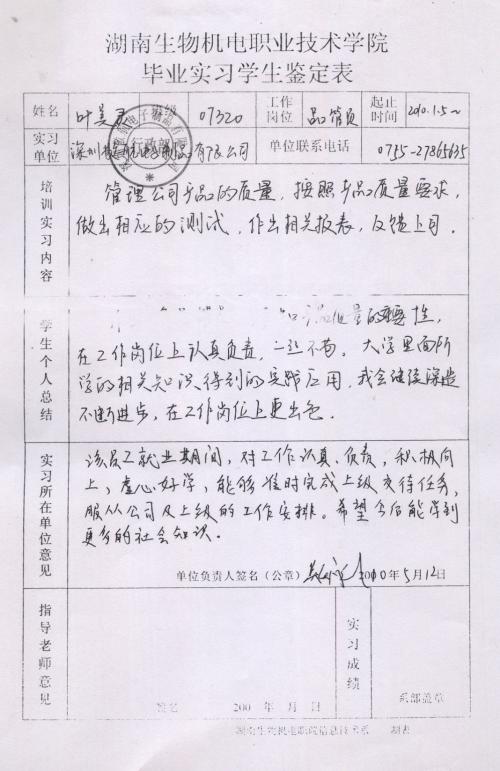 湖南生物机电职业技术学院
毕业实习学生鉴定表
姓名 叶美灵 班级 07320 工作岗位 品管员 起止时间 2010.1.5~
实习单位 深圳 电子制品有限公司 单位联系电话 0755-27865635
培训实习内容
管理公司产品的质量，按照产品质量要求，
做出相应的测试，作出相关报表，反馈上司．
学生个人总结
知 品质量的重要性，
在工作岗位上认真负责，一丝不苟。大学里面所
学的相关知识得到的实践应用，我会继续深造
不断进步，在工作岗位上更出色．
实习所在单位意见
该员工就业期间，对工作认真、负责，积极向
上，虚心好学，能够准时完成上级交待任务，
服从公司及上级的工作安排。希望今后能学到
更多的社会知识．
单位负责人签名（公章） 2010年5月12日
指导老师意见
签名 200 年 月 日
实习成绩
系部盖章
湖南生物机电职院信息技术系 制表